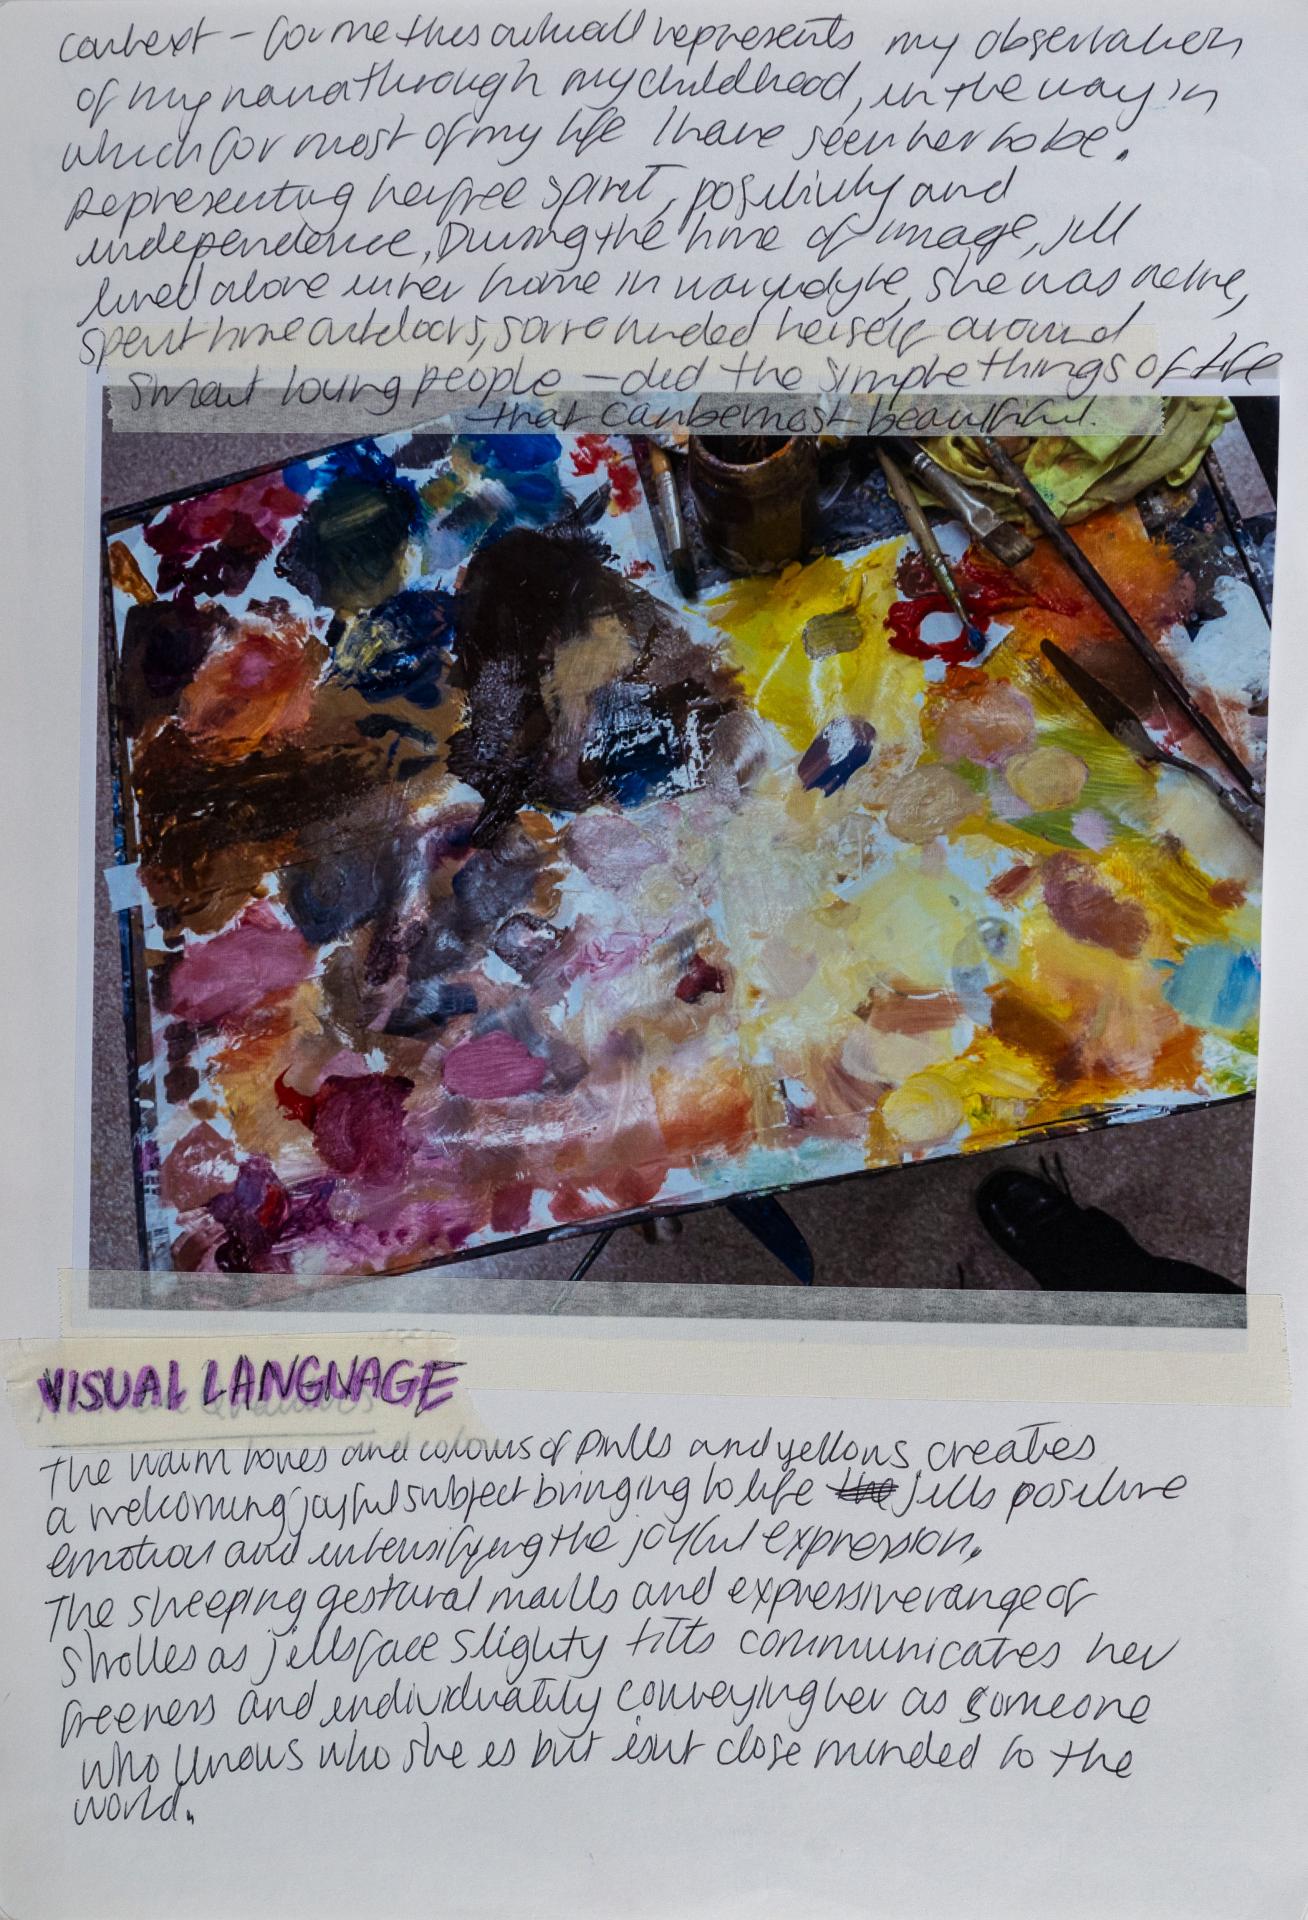 context - for me this artwork represents my observation
of my nana through my childhood, in the way in
which for most of my life I have seen her to be.
Representing her free spirit, positivity and
independence. During the time of image, jill
lived alone in her home in warrandyte, she was active,
spent time outdoors, sorrounded herself around
smart loving people - did the simple things of life
that can be most beautiful.
VISUAL LANGUAGE
The warm tones and colours of pinks and yellows creates
a welcoming joyful subject bringing to life the jills positive
emotion and intensifying the joyful expression.
The sweeping gestural marks and expressive range of
strokes as jills face slighty tilts communicates her
freeness and individuality conveying her as someone
who knows who she is but isnt close minded to the
world.